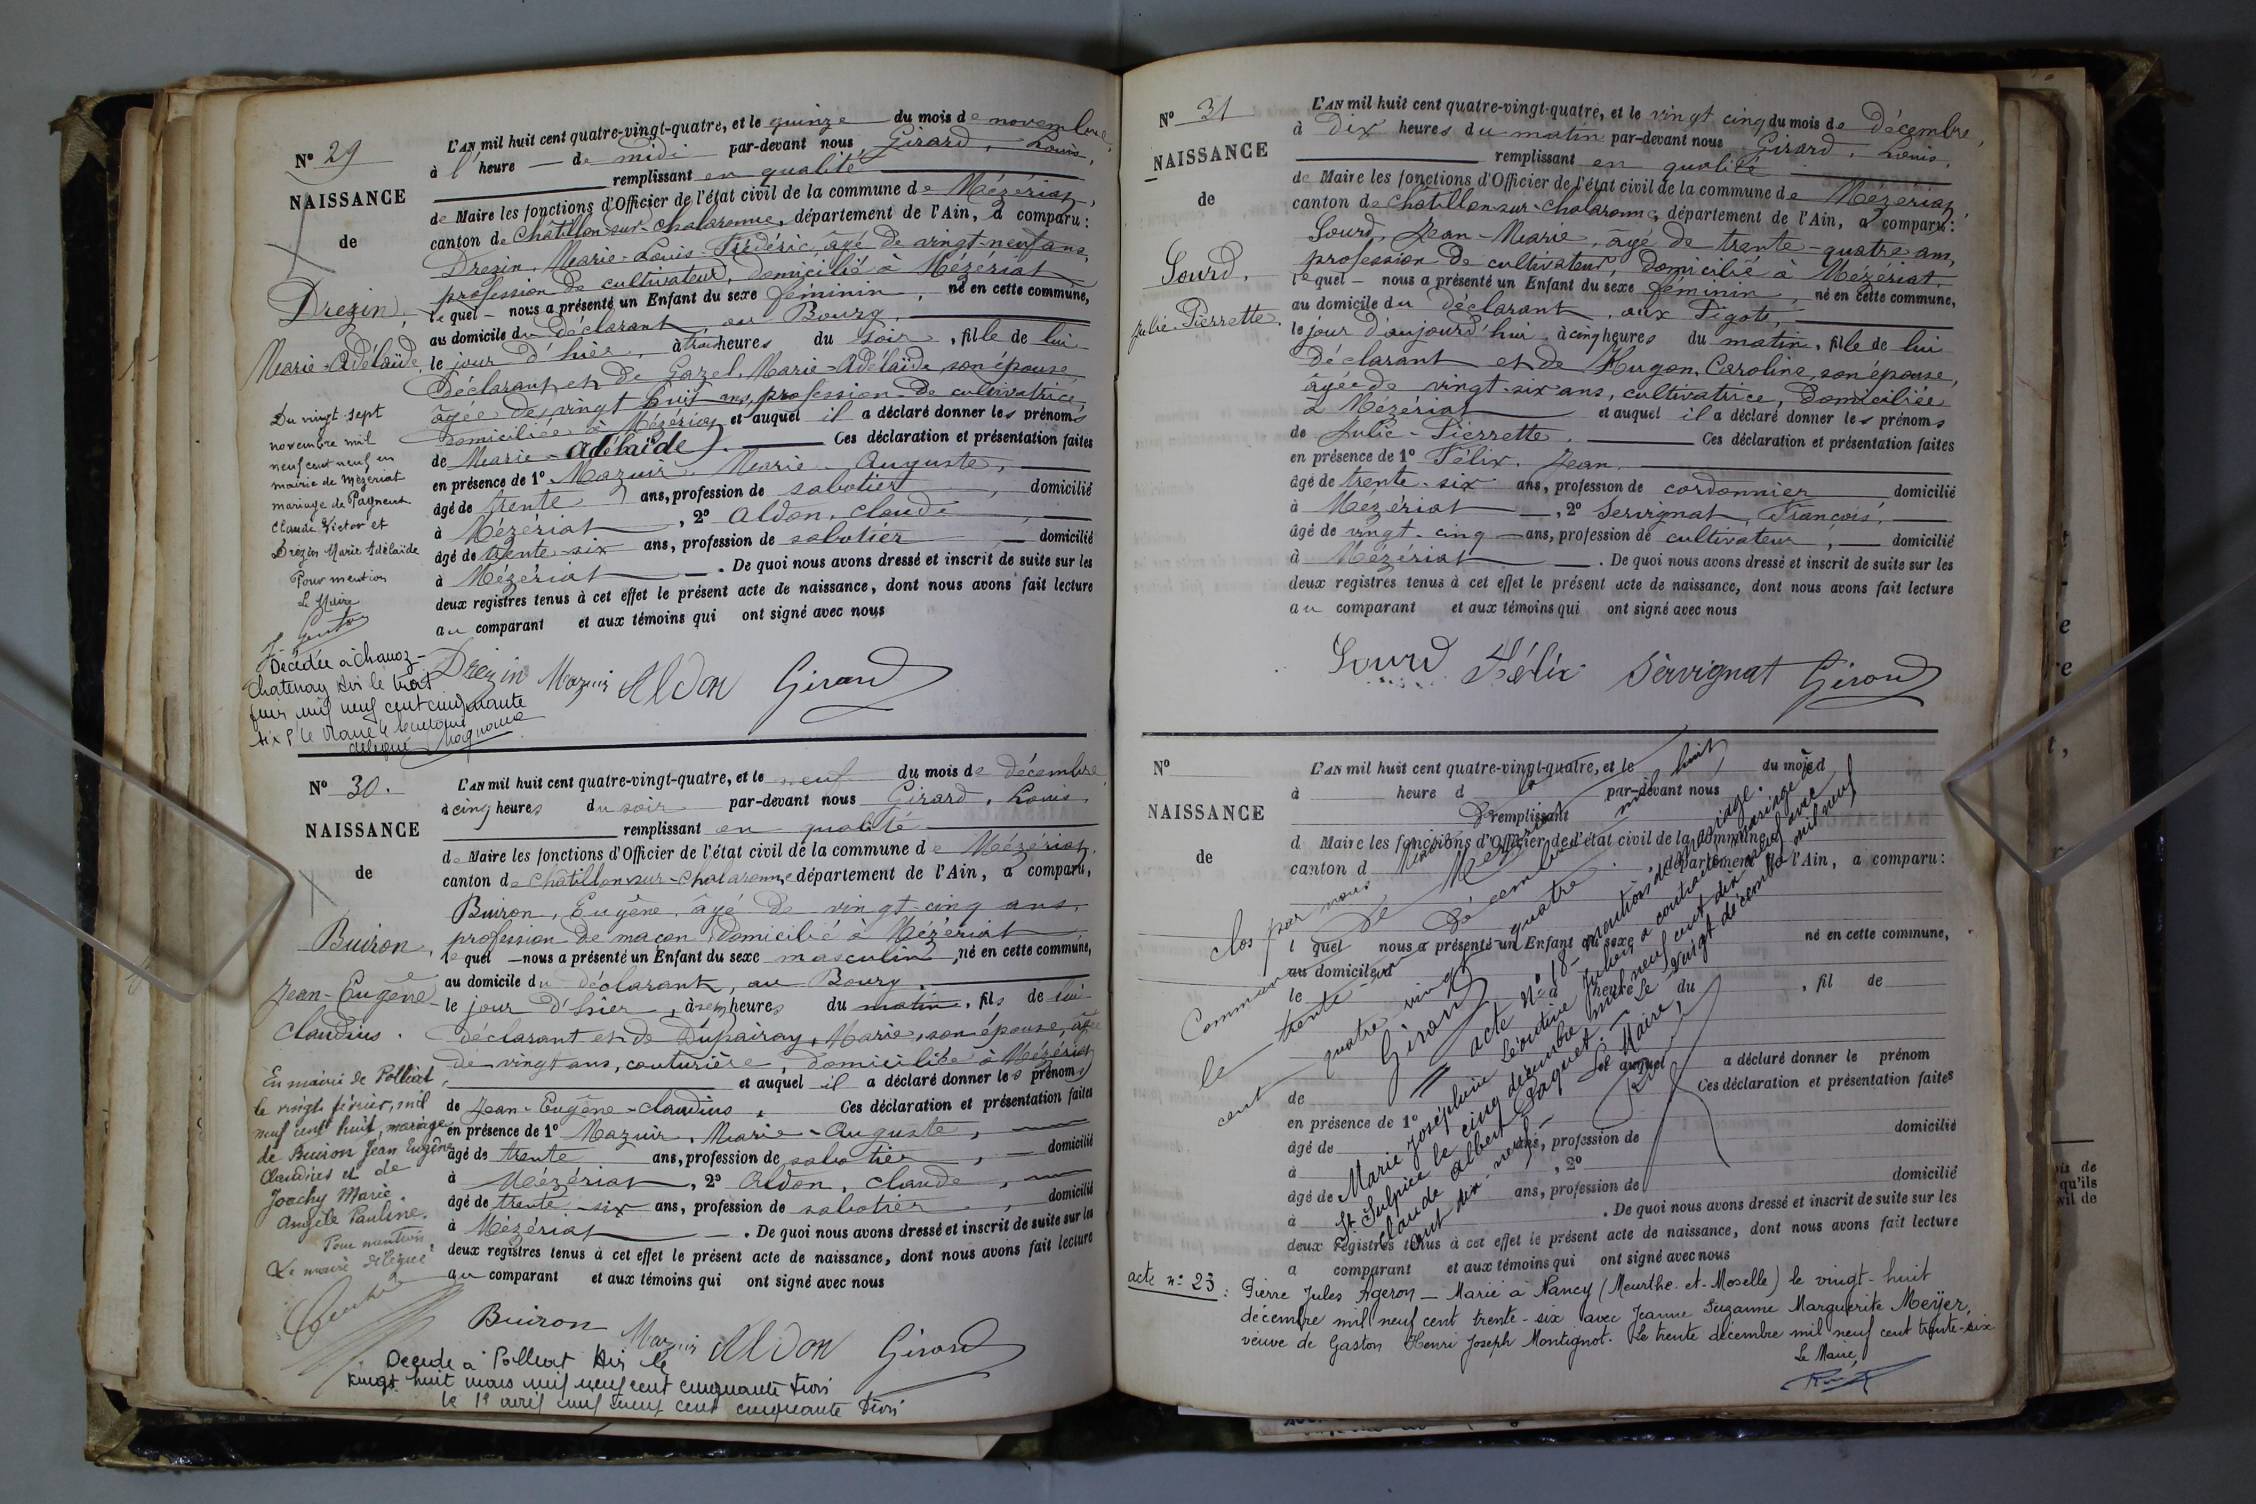 N° 29
NAISSANCE
de
Drezin,
Marie-Adélaïde.
Du vingt-sept
novembre mil
neuf cent neuf en
mairie de Mézériat
mariage de Pagneux
Claude Victor et
Drezin Marie Adélaïde
Pour mention
Le Maire
Décédée à Chanoz-
Chatenay Ain le trois
juin mil neuf cent cinquante
six
délégué
L'AN mil huit cent quatre-vingt-quatre, et le quinze du mois de novembre,
à l' heure de midi par-devant nous Girard, Louis,
remplissant en qualité
de Maire les fonctions d'Officier de l'état civil de la commune de Mézériat,
canton de Châtillon-sur-Chalaronne, département de l'Ain, a comparu:
Drezin, Marie-Louis-Frédéric, âgé de vingt-neuf ans,
profession de cultivateur, domicilié à Mézériat
lequel nous a présenté un Enfant du sexe féminin, né en cette commune,
au domicile du déclarant, au Bourg,
le jour d'hier, à trois heures du soir, fille de lui
déclarant et de Gazel, Marie-Adélaïde, son épouse,
âgée de vingt huit ans, profession de cultivatrice,
domiciliée à Mézériat et auquel il a déclaré donner les prénoms
de Marie-Adélaïde. Ces déclaration et présentation faites
en présence de 1° Mazuir, Marie-Auguste,
âgé de trente ans, profession de sabotier, domicilié
à Mézériat, 2° Aldon, Claude,
âgé de trente-six ans, profession de sabotier, domicilié
à Mézériat. De quoi nous avons dressé et inscrit de suite sur les
deux registres tenus à cet effet le présent acte de naissance, dont nous avons fait lecture
au comparant et aux témoins qui ont signé avec nous
Drezin Mazuir Aldon Girard
N° 30.
NAISSANCE
de
Buiron,
Jean-Eugène
Claudius.
En mairie de Polliat,
le vingt février, mil
neuf cent huit, mariage
de Buiron Jean Eugène
Claudius et de
Joachy Marie.
Angèle Pauline.
Pour mention
Le maire délégué
L'AN mil huit cent quatre-vingt-quatre, et le neuf du mois de décembre
à cinq heures du soir par-devant nous Girard, Louis,
remplissant en qualité
de Maire les fonctions d'Officier de l'état civil de la commune de Mézériat,
canton de Châtillon-sur-Chalaronne département de l'Ain, a comparu,
Buiron, Eugène, âgé de vingt-cinq ans,
profession de maçon, domicilié à Mézériat
lequel nous a présenté un Enfant du sexe masculin, né en cette commune,
au domicile du déclarant, au Bourg,
le jour d'hier, à sept heures du matin, fils de lui
déclarant et de Dupairay, Marie, son épouse, âgée
de vingt ans, couturière, domiciliée à Mézériat
et auquel il a déclaré donner les prénoms
de Jean-Eugène-Claudius. Ces déclaration et présentation faites
en présence de 1° Mazuir, Marie-Auguste,
âgé de trente ans, profession de sabotier, domicilié
à Mézériat, 2° Aldon, Claude,
âgé de trente-six ans, profession de sabotier, domicilié
à Mézériat. De quoi nous avons dressé et inscrit de suite sur les
deux registres tenus à cet effet le présent acte de naissance, dont nous avons fait lecture
au comparant et aux témoins qui ont signé avec nous
Buiron Mazuir Aldon Girard
Décédé à Polliat Ain le
vingt huit mars mil neuf cent cinquante trois
le 1er avril mil neuf cent cinquante trois
N° 31
NAISSANCE
de
Sourd,
Julie-Pierrette.
L'AN mil huit cent quatre-vingt-quatre, et le vingt cinq du mois de décembre,
à dix heures du matin par-devant nous Girard, Louis,
remplissant en qualité
de Maire les fonctions d'Officier de l'état civil de la commune de Mézériat,
canton de Châtillon-sur-Chalaronne, département de l'Ain, a comparu:
Sourd, Jean-Marie, âgé de trente-quatre ans,
profession de cultivateur, domicilié à Mézériat,
lequel nous a présenté un Enfant du sexe féminin, né en cette commune,
au domicile du déclarant, aux Pigots,
le jour d'aujourd'hui, à cinq heures du matin, fille de lui
déclarant et de Hugon, Caroline, son épouse,
âgée de vingt-six ans, cultivatrice, domiciliée
à Mézériat et auquel il a déclaré donner les prénoms
de Julie-Pierrette. Ces déclaration et présentation faites
en présence de 1° Félix, Jean,
âgé de trente-six ans, profession de cordonnier domicilié
à Mézériat, 2° Servignat, François,
âgé de vingt-cinq ans, profession de cultivateur, domicilié
à Mézériat. De quoi nous avons dressé et inscrit de suite sur les
deux registres tenus à cet effet le présent acte de naissance, dont nous avons fait lecture
au comparant et aux témoins qui ont signé avec nous
Sourd Félix Servignat Girard
N°
NAISSANCE
de
L'AN mil huit cent quatre-vingt-quatre, et le du mois d
à heure d par-devant nous
remplissant
d Maire les fonctions d'Officier de l'état civil de la commune
canton d département de l'Ain, a comparu:
l quel nous a présenté un Enfant du sexe né en cette commune,
au domicile d
le à heure du , fil de
et auquel a déclaré donner le prénom
de Ces déclaration et présentation faites
en présence de 1°
âgé de ans, profession de domicilié
à , 2°
âgé de ans, profession de domicilié
à . De quoi nous avons dressé et inscrit de suite sur les
deux registres tenus à cet effet le présent acte de naissance, dont nous avons fait lecture
a comparant et aux témoins qui ont signé avec nous
Clos par nous Maire de la
Commune de Mézériat
le trente décembre mil huit
cent quatre vingt quatre.
Girard
acte N° 18 - mention de mariage.
Marie Joséphine Léontine a contracté mariage à
St Sulpice le cinq décembre mil neuf cent dix neuf avec
Claude Albert Paquet. Le vingt décembre mil neuf
cent dix-neuf.
Le Maire,
acte n° 23 : Pierre Jules Ageron — Marié à Nancy (Meurthe-et-Moselle) le vingt-huit
décembre mil neuf cent trente-six avec Jeanne Suzanne Marguerite Meÿer,
veuve de Gaston Henri Joseph Montignot. Le trente décembre mil neuf cent trente-six
Le Maire,